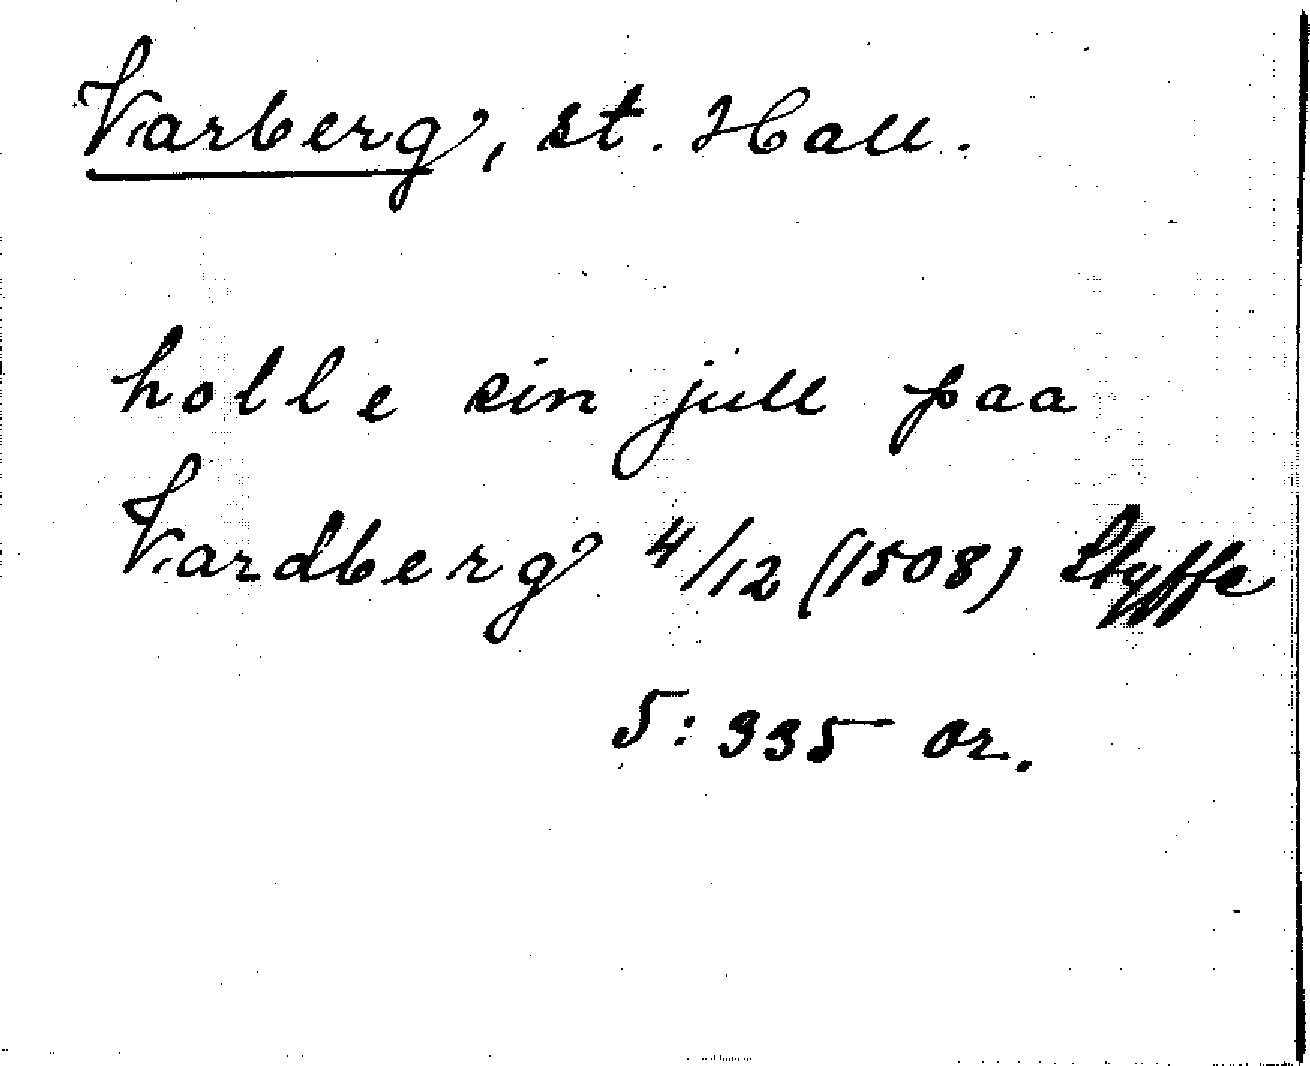 Varberg, st. Hall.
holle sin jull paa
Vardberg 4/12 (1508) Styffe
5: 335 or.